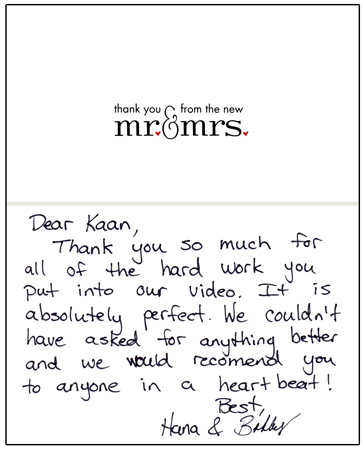 thank you & from the new
mr. & mrs.
Dear Kaan,
Thank you so much for
all of the hard work you
put into our video. It is
absolutely perfect. We couldn't
have asked for anything better
and we would recomend you
to anyone in a heart beat!
Best,
Hana & Bobby